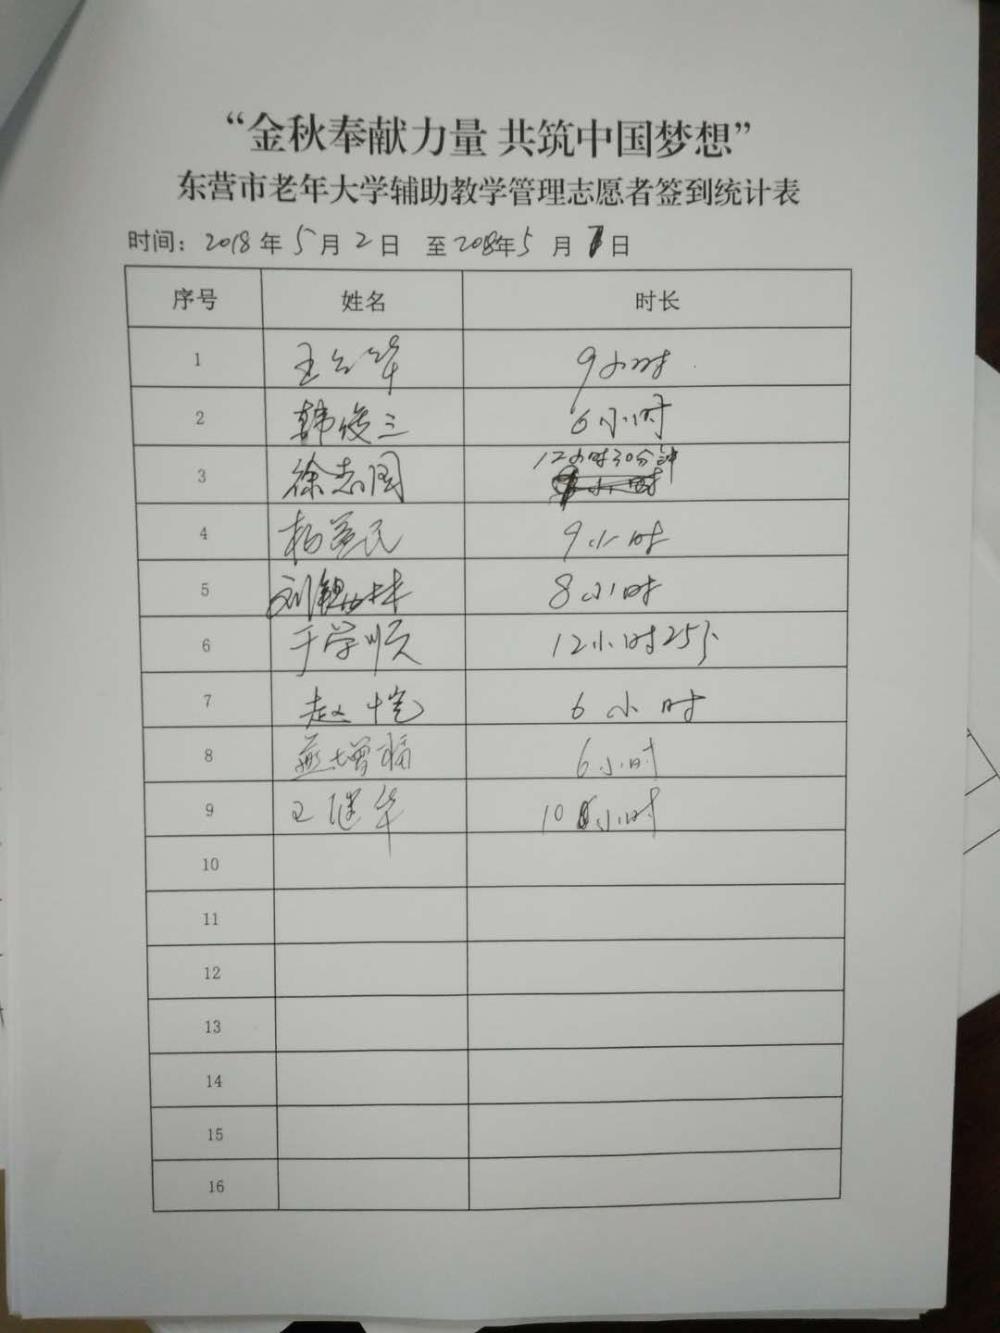 “金秋奉献力量 共筑中国梦想”
东营市老年大学辅助教学管理志愿者签到统计表
时间：2018年5月2日 至2018年5月 日
序号 姓名 时长
1 王 华 9小时
2 韩俊三 6小时
3 徐志国 12小时30分钟
4 杨 民 9小时
5 刘 林 8小时
6 于学顺 12小时25分
7 赵恺 6小时
8 燕增福 6小时
9 王继华 10小时
10
11
12
13
14
15
16